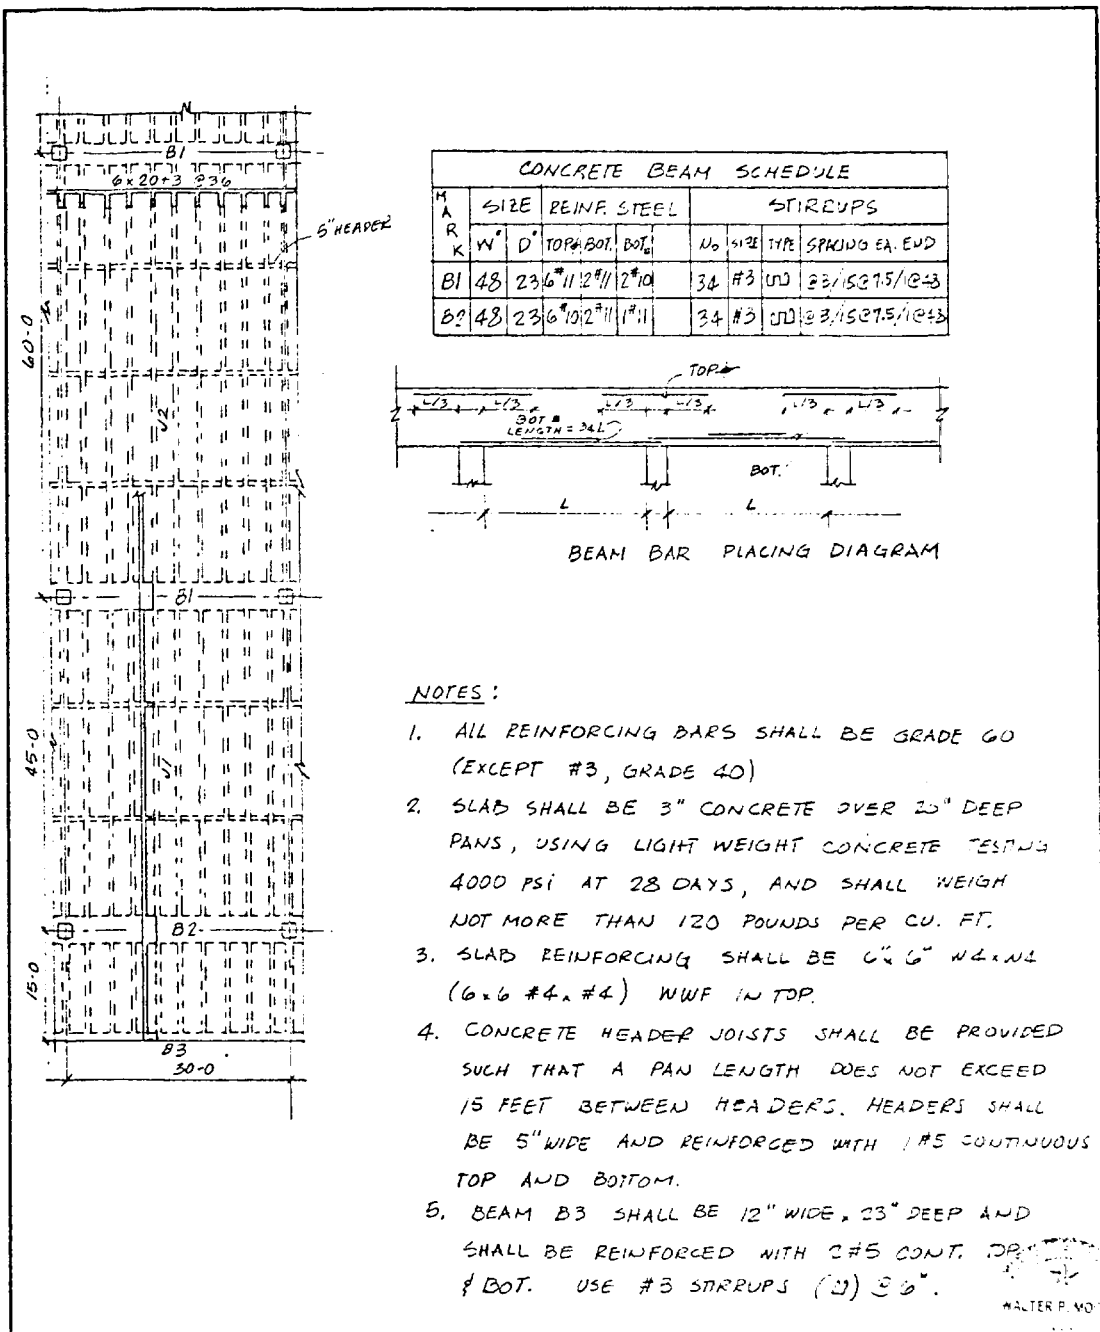 B1
6 x 20 + 3 @ 36
5" HEADER
60-0
J2
B1
45-0
J1
B2
15-0
B3
30-0
CONCRETE BEAM SCHEDULE
MARK SIZE REINF. STEEL STIRRUPS
W" D" TOP BOT. BOT. No SIZE TYPE SPACING EA. END
B1 48 23 6#11 2#11 2#10 34 #3 @3/15@7.5/1@
B2 48 23 6#10 2#11 1#11 34 #3 @3/15@7.5/1@
TOP
L/3 L/3 L/3 L/3 L/3 L/3
BOT
LENGTH =
BOT.
L L
BEAM BAR PLACING DIAGRAM
NOTES:
1. ALL REINFORCING BARS SHALL BE GRADE 60
(EXCEPT #3, GRADE 40)
2. SLAB SHALL BE 3" CONCRETE OVER 20" DEEP
PANS, USING LIGHT WEIGHT CONCRETE TESTING
4000 PSI AT 28 DAYS, AND SHALL WEIGH
NOT MORE THAN 120 POUNDS PER CU. FT.
3. SLAB REINFORCING SHALL BE 6"x 6" W4 x W4
(6x6 #4 x #4) WWF IN TOP.
4. CONCRETE HEADER JOISTS SHALL BE PROVIDED
SUCH THAT A PAN LENGTH DOES NOT EXCEED
15 FEET BETWEEN HEADERS. HEADERS SHALL
BE 5" WIDE AND REINFORCED WITH 1 #5 CONTINUOUS
TOP AND BOTTOM.
5. BEAM B3 SHALL BE 12" WIDE, 23" DEEP AND
SHALL BE REINFORCED WITH 2#5 CONT.
& BOT. USE #3 STIRRUPS @ 6".
WALTER P. MO